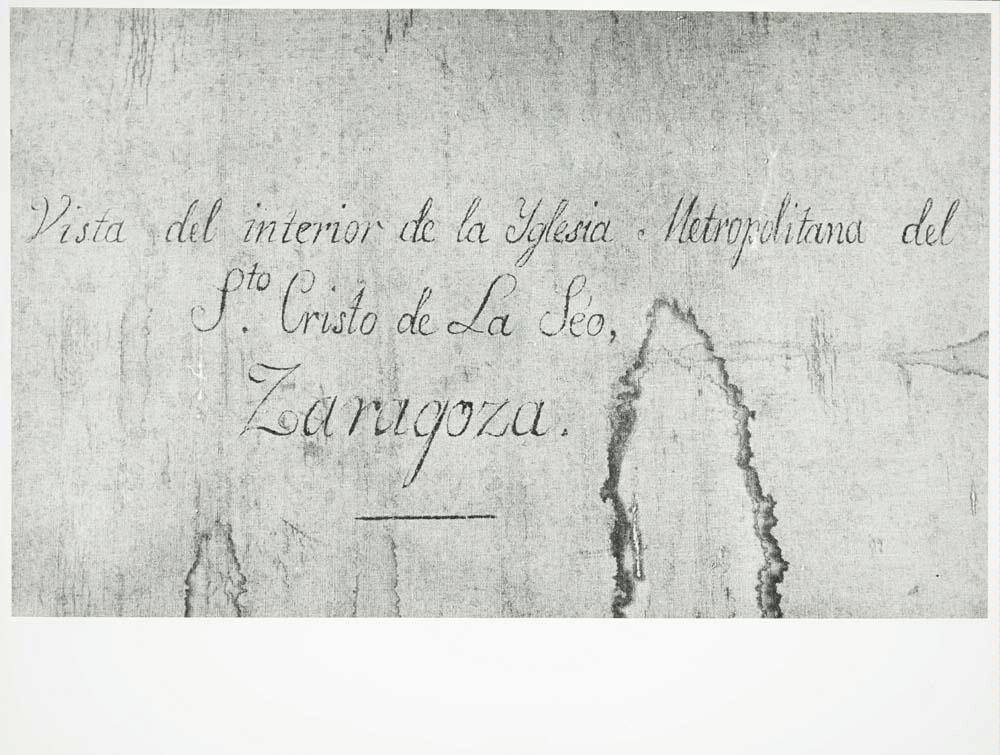 Vista del interior de la Yglesia Metropolitana del
Sto. Cristo de La Séo,
Zaragoza.